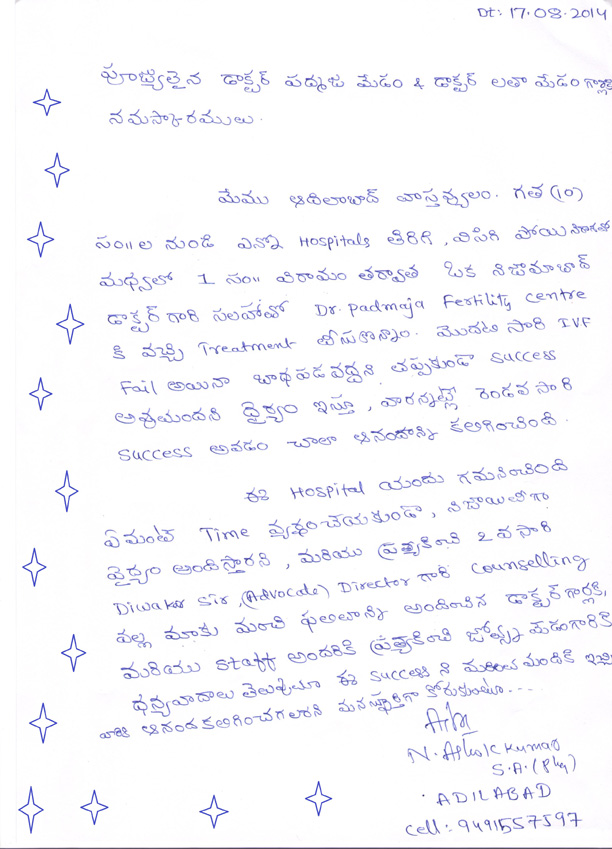 Dt: 17.08.2014
పూజ్యులైన డాక్టర్ పద్మజ మేడం & డాక్టర్ లతా మేడం గార్లకి
నమస్కారములు.
మేము ఆదిలాబాద్ వాస్తవ్యులం. గత (10)
సం॥ల నుండి ఎన్నో Hospitals తిరిగి, విసిగి పోయి
మధ్యలో 1 సం॥ విరామం తర్వాత ఒక నిజామాబాద్
డాక్టర్ గారి సలహాతో Dr. Padmaja Fertility centre
కి వచ్చి Treatment తీసుకొన్నాం. మొదటి సారి IVF
Fail అయినా బాధపడవద్దని తప్పకుండా success
అవుతుందని ధైర్యం ఇస్తూ, వారన్నట్లే రెండవ సారి
success అవడం చాలా ఆనందాన్ని కలిగించింది.
ఈ Hospital యందు గమనించింది
ఏమంటే Time వ్యర్థంచేయకుండా, నిజాయితీగా
వైద్యం అందిస్తారని, మరియు ప్రత్యేకించి 2వ సారి
Diwaker Sir, (Advocate) Director గారి counselling
వల్ల మాకు మంచి ఫలితాన్ని అందించిన డాక్టర్ గార్లకి,
మరియు staff అందరికి ప్రత్యేకించి జ్యోత్స్న మేడంగారికి
ధన్యవాదాలు తెలుపుతూ ఈ success ని మరింత మందికి ఇచ్చి
వారికి ఆనందం కలిగించగలరని మనస్ఫూర్తిగా కోరుకుంటూ....
N. Ashok Kumar
S.A. (Phy)
ADILABAD
cell: 9491557597